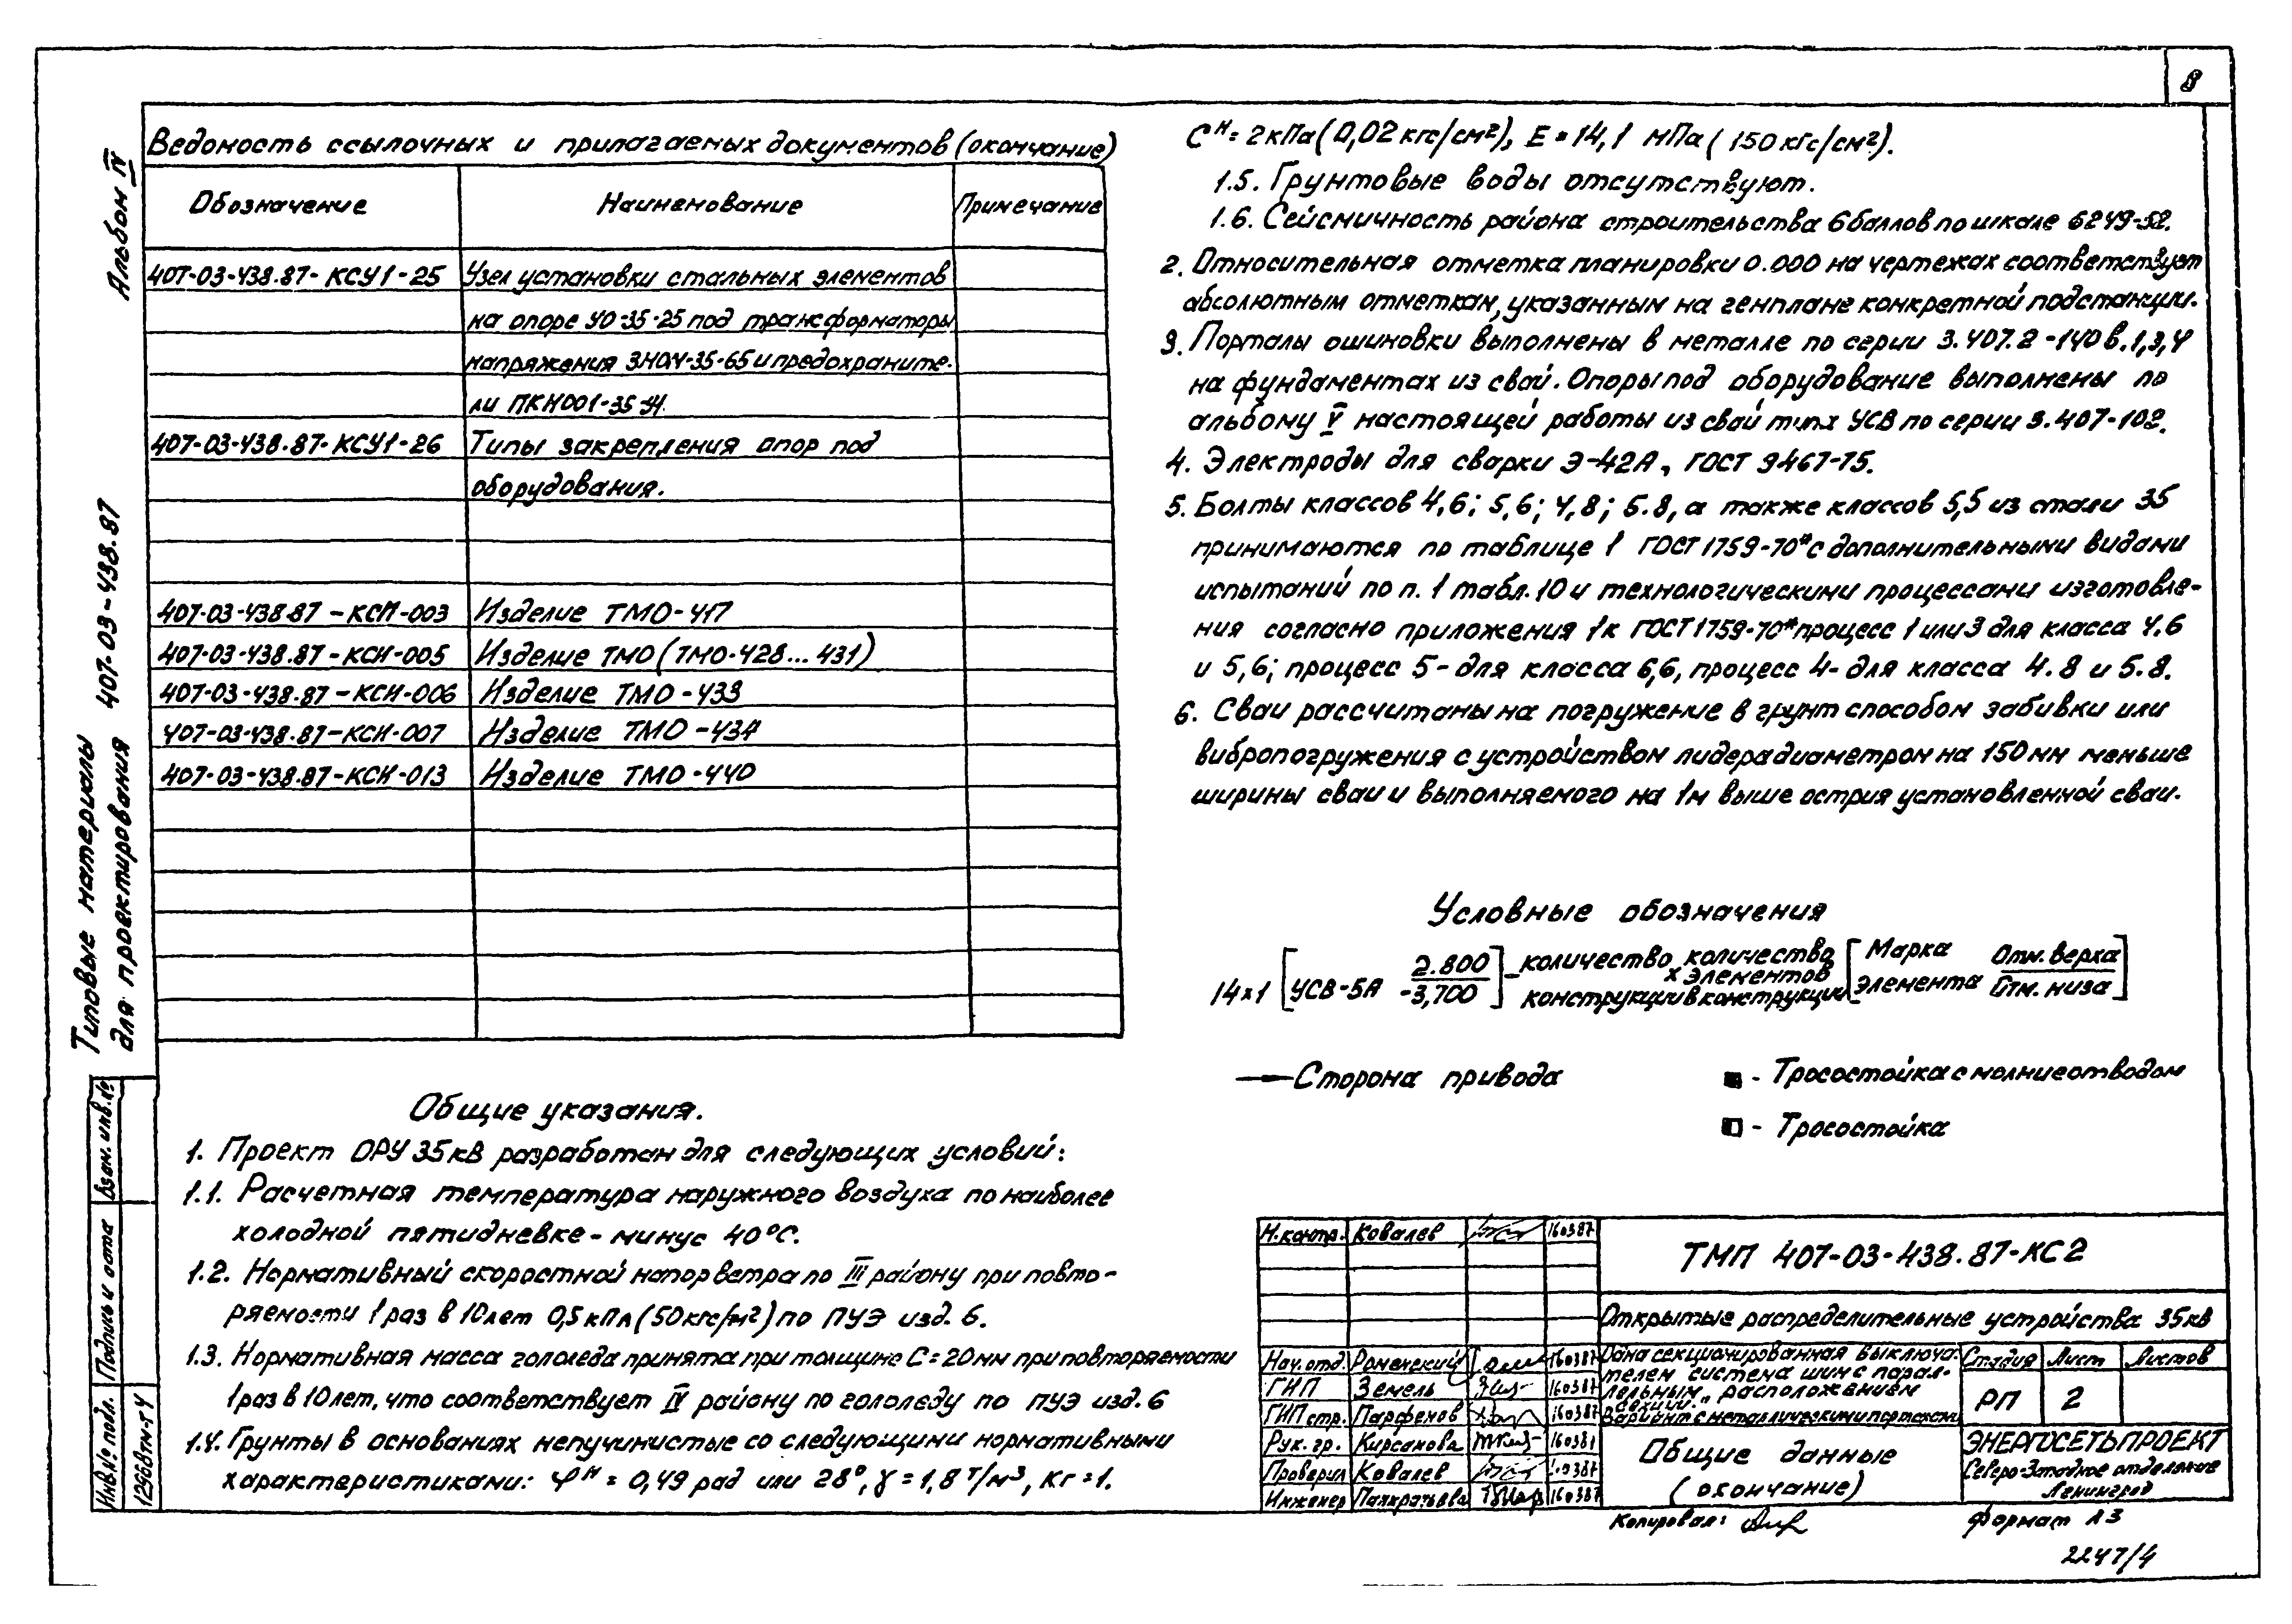 8
Альбом IV
Типовые материалы
для проектирования 407-03-438.87
Ведомость ссылочных и прилагаемых документов (окончание)
Обозначение Наименование Примечание
407-03-438.87-КСУ1-25 Узел установки стальных элементов
на опоре УО-35-25 под трансформаторы
напряжения ЗНОМ-35-65 и предохраните-
ли ПКН001-35
407-03-438.87-КСУ1-26 Типы закрепления опор под
оборудования.
407-03-438.87-КСИ-003 Изделие ТМО-417
407-03-438.87-КСИ-005 Изделие ТМО (ТМО-428...431)
407-03-438.87-КСИ-006 Изделие ТМО-433
407-03-438.87-КСИ-007 Изделие ТМО-434
407-03-438.87-КСИ-013 Изделие ТМО-440
Общие указания.
1. Проект ОРУ 35кВ разработан для следующих условий:
1.1. Расчетная температура наружного воздуха по наиболее
холодной пятидневке - минус 40°С.
1.2. Нормативный скоростной напор ветра по III району при повто-
ряемости 1 раз в 10 лет 0,5 кПа (50 кгс/м²) по ПУЭ изд. 6.
1.3. Нормативная масса гололеда принята при толщине С=20мм при повторяемости
1 раз в 10 лет, что соответствует IV району по гололеду по ПУЭ изд. 6
1.4. Грунты в основаниях непучинистые со следующими нормативными
характеристиками: φᴴ = 0,49 рад или 28°, γ = 1,8 т/м³, Кг=1.
Сᴴ = 2кПа (0,02 кгс/см²), Е = 14,1 мПа (150 кгс/см²).
1.5. Грунтовые воды отсутствуют.
1.6. Сейсмичность района строительства 6 баллов по шкале 6249-52.
2. Относительная отметка планировки 0.000 на чертежах соответствует
абсолютным отметкам, указанным на генплане конкретной подстанции.
3. Порталы ошиновки выполнены в металле по серии 3.407.2-140 в.1,3,4
на фундаментах из свай. Опоры под оборудование выполнены по
альбому V настоящей работы из свай типа УСВ по серии 3.407-102.
4. Электроды для сварки Э-42А, ГОСТ 9467-75.
5. Болты классов 4,6; 5,6; 4,8; 5.8, а также классов 5,5 из стали 35
принимаются по таблице 1 ГОСТ 1759-70* с дополнительными видами
испытаний по п. 1 табл. 10 и технологическими процессами изготовле-
ния согласно приложения 1 к ГОСТ 1759-70* процесс 1 или 3 для класса 4.6
и 5,6; процесс 5 - для класса 6,6, процесс 4 - для класса 4.8 и 5.8.
6. Сваи рассчитаны на погружение в грунт способом забивки или
вибропогружения с устройством лидера диаметром на 150мм меньше
ширины сваи и выполняемого на 1м выше острия установленной сваи.
Условные обозначения
14×1 [УСВ-5А 2.800 / -3,700] - количество конструкции × количество элементов в конструкции [Марка элемента Отм. верха / Отм. низа]
— Сторона привода
■ - Тросостойка с молниеотводом
□ - Тросостойка
Взам. инв. №
Подпись и дата
Инв. № подл. 12968тм-т4
Н.контр. Ковалев 160387
ТМП 407-03-438.87-КС2
Открытые распределительные устройства 35кВ
Нач. отд. Роменский 160387
ГИП Земель 160387
ГИП стр. Парфенов 160387
Рук. гр. Кирсанова 160387
Проверил Ковалев 160387
Инженер Панкратьева 160387
Одна секционированная выключа-
телем система шин с парал-
лельным расположением
секций.
Вариант с металлическими порталами
Стадия Лист Листов
РП 2
Общие данные
(окончание)
ЭНЕРГОСЕТЬПРОЕКТ
Северо-Западное отделение
Ленинград
Копировал:
Формат А3
2247/4